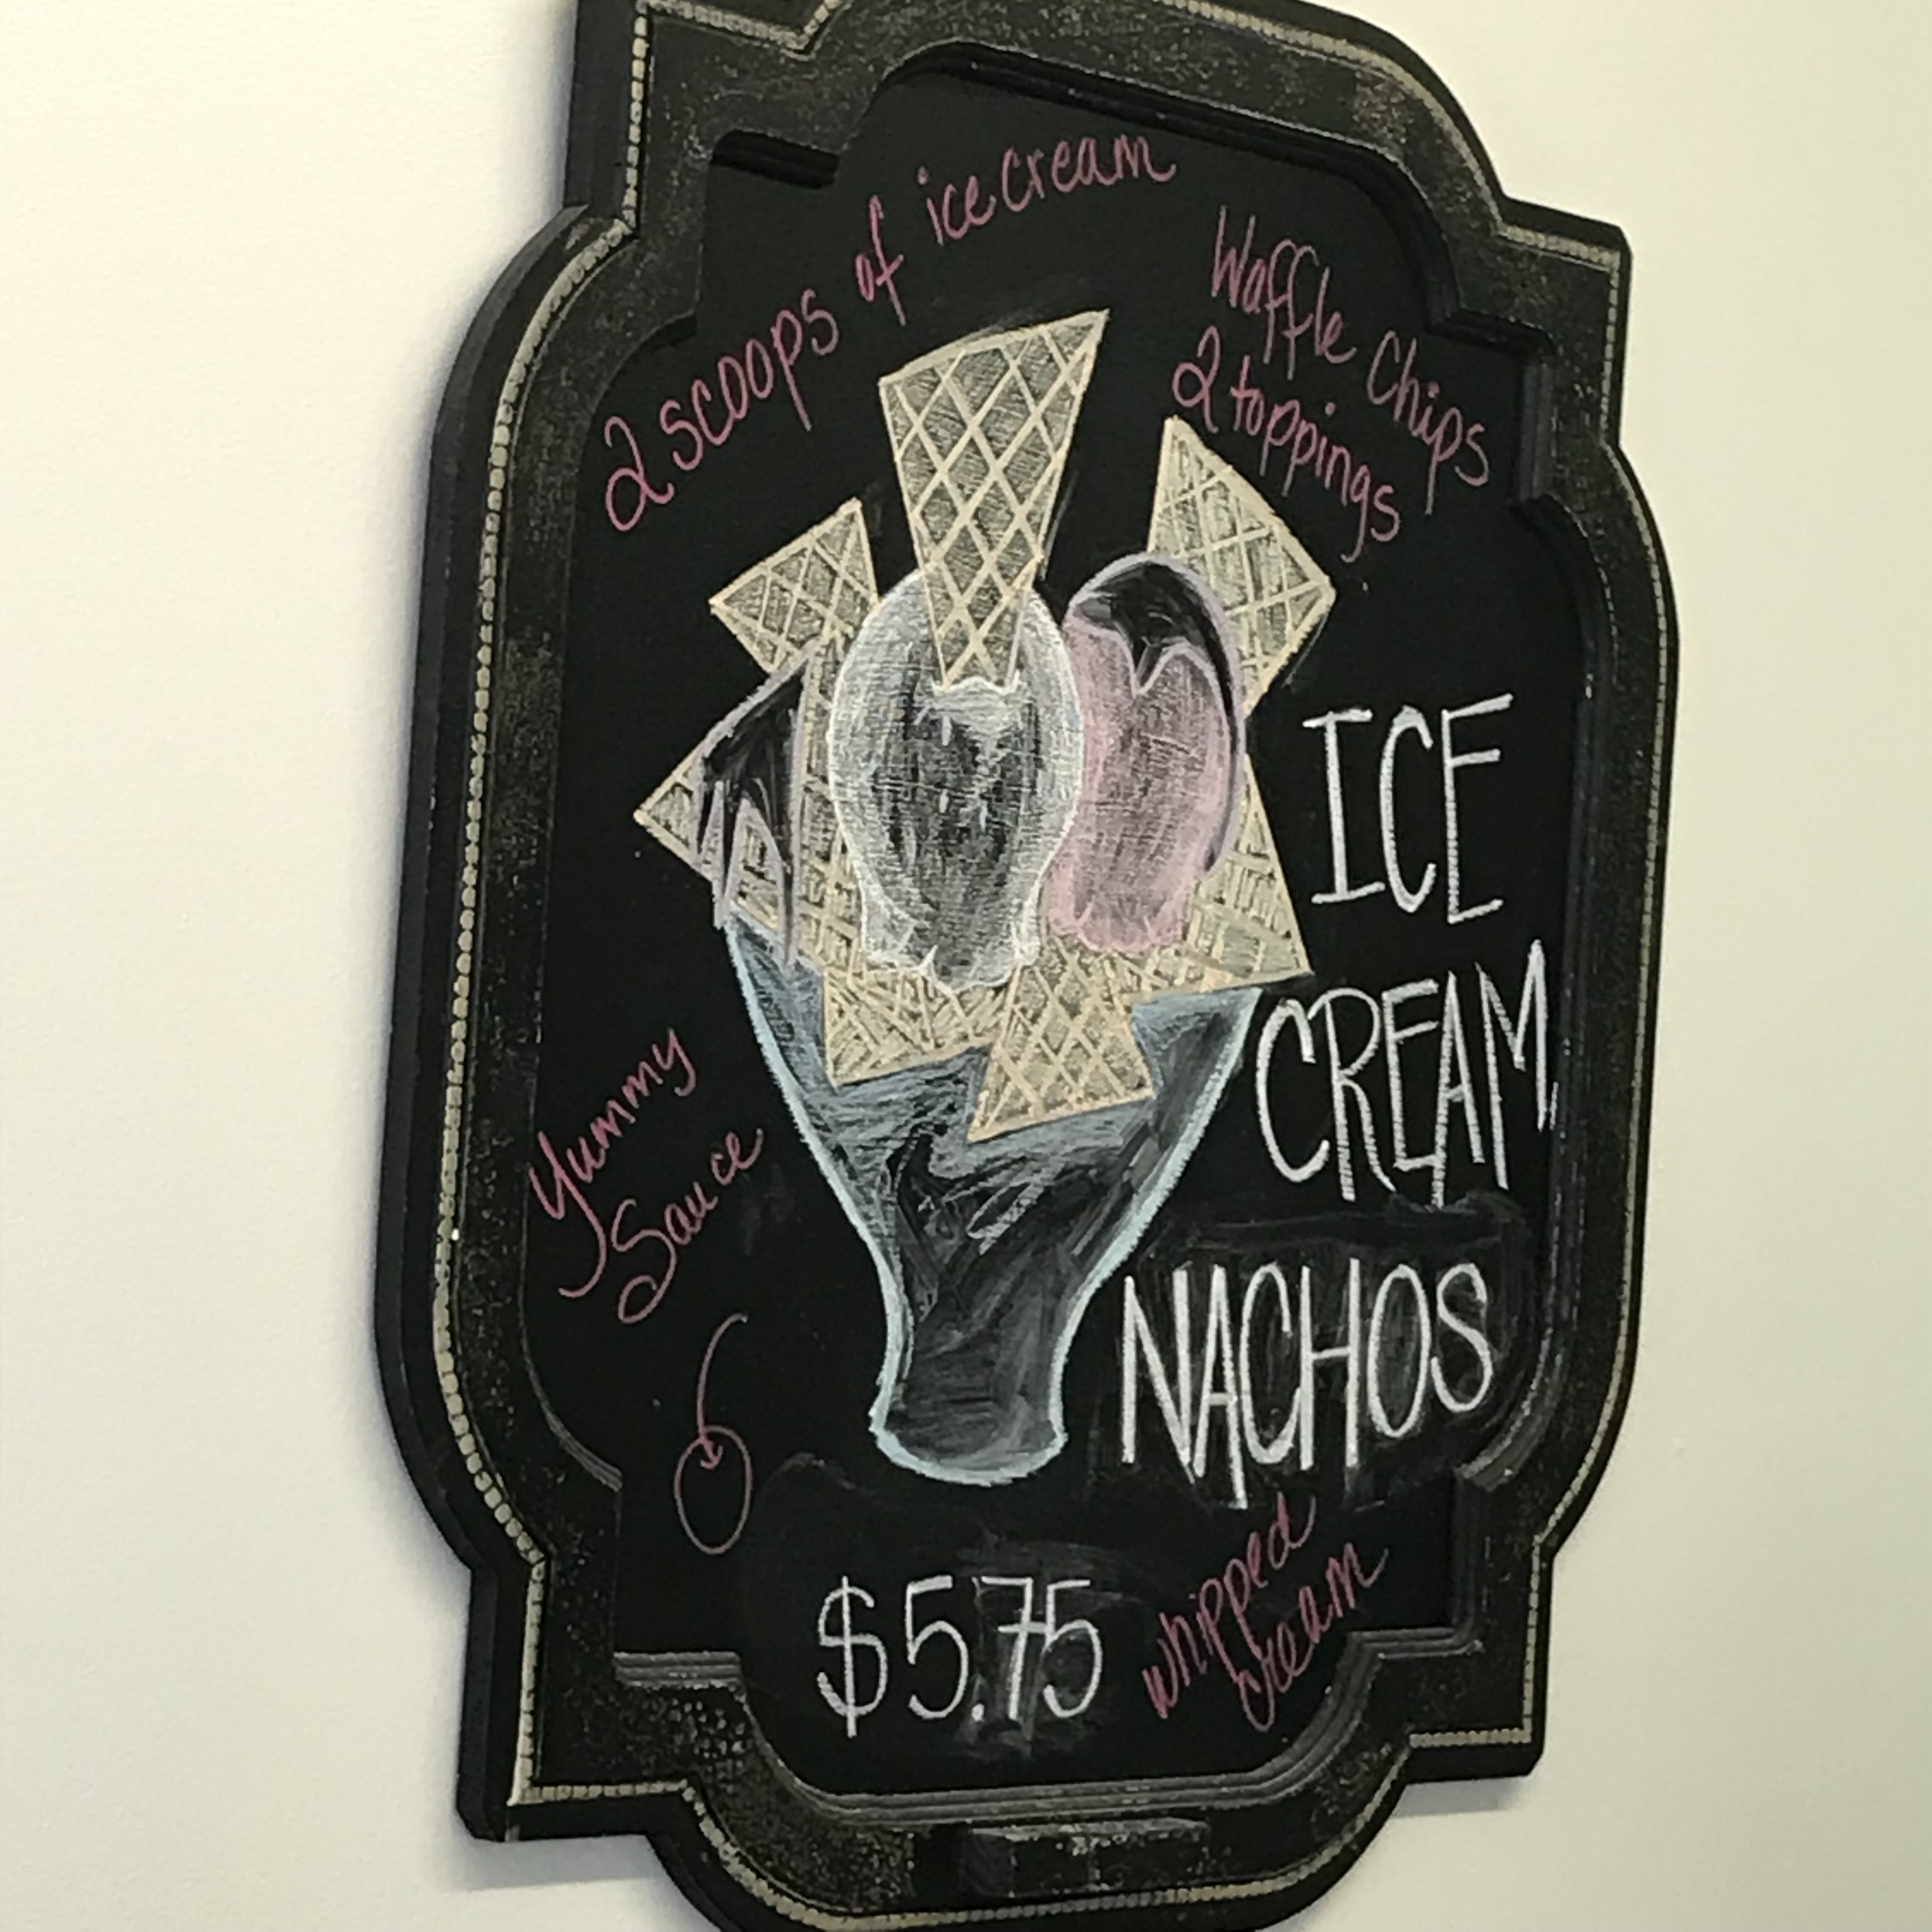 2 scoops of ice cream
Waffle Chips
2 toppings
ICE
CREAM
NACHOS
Yummy
Sauce
$5.75
whipped
cream